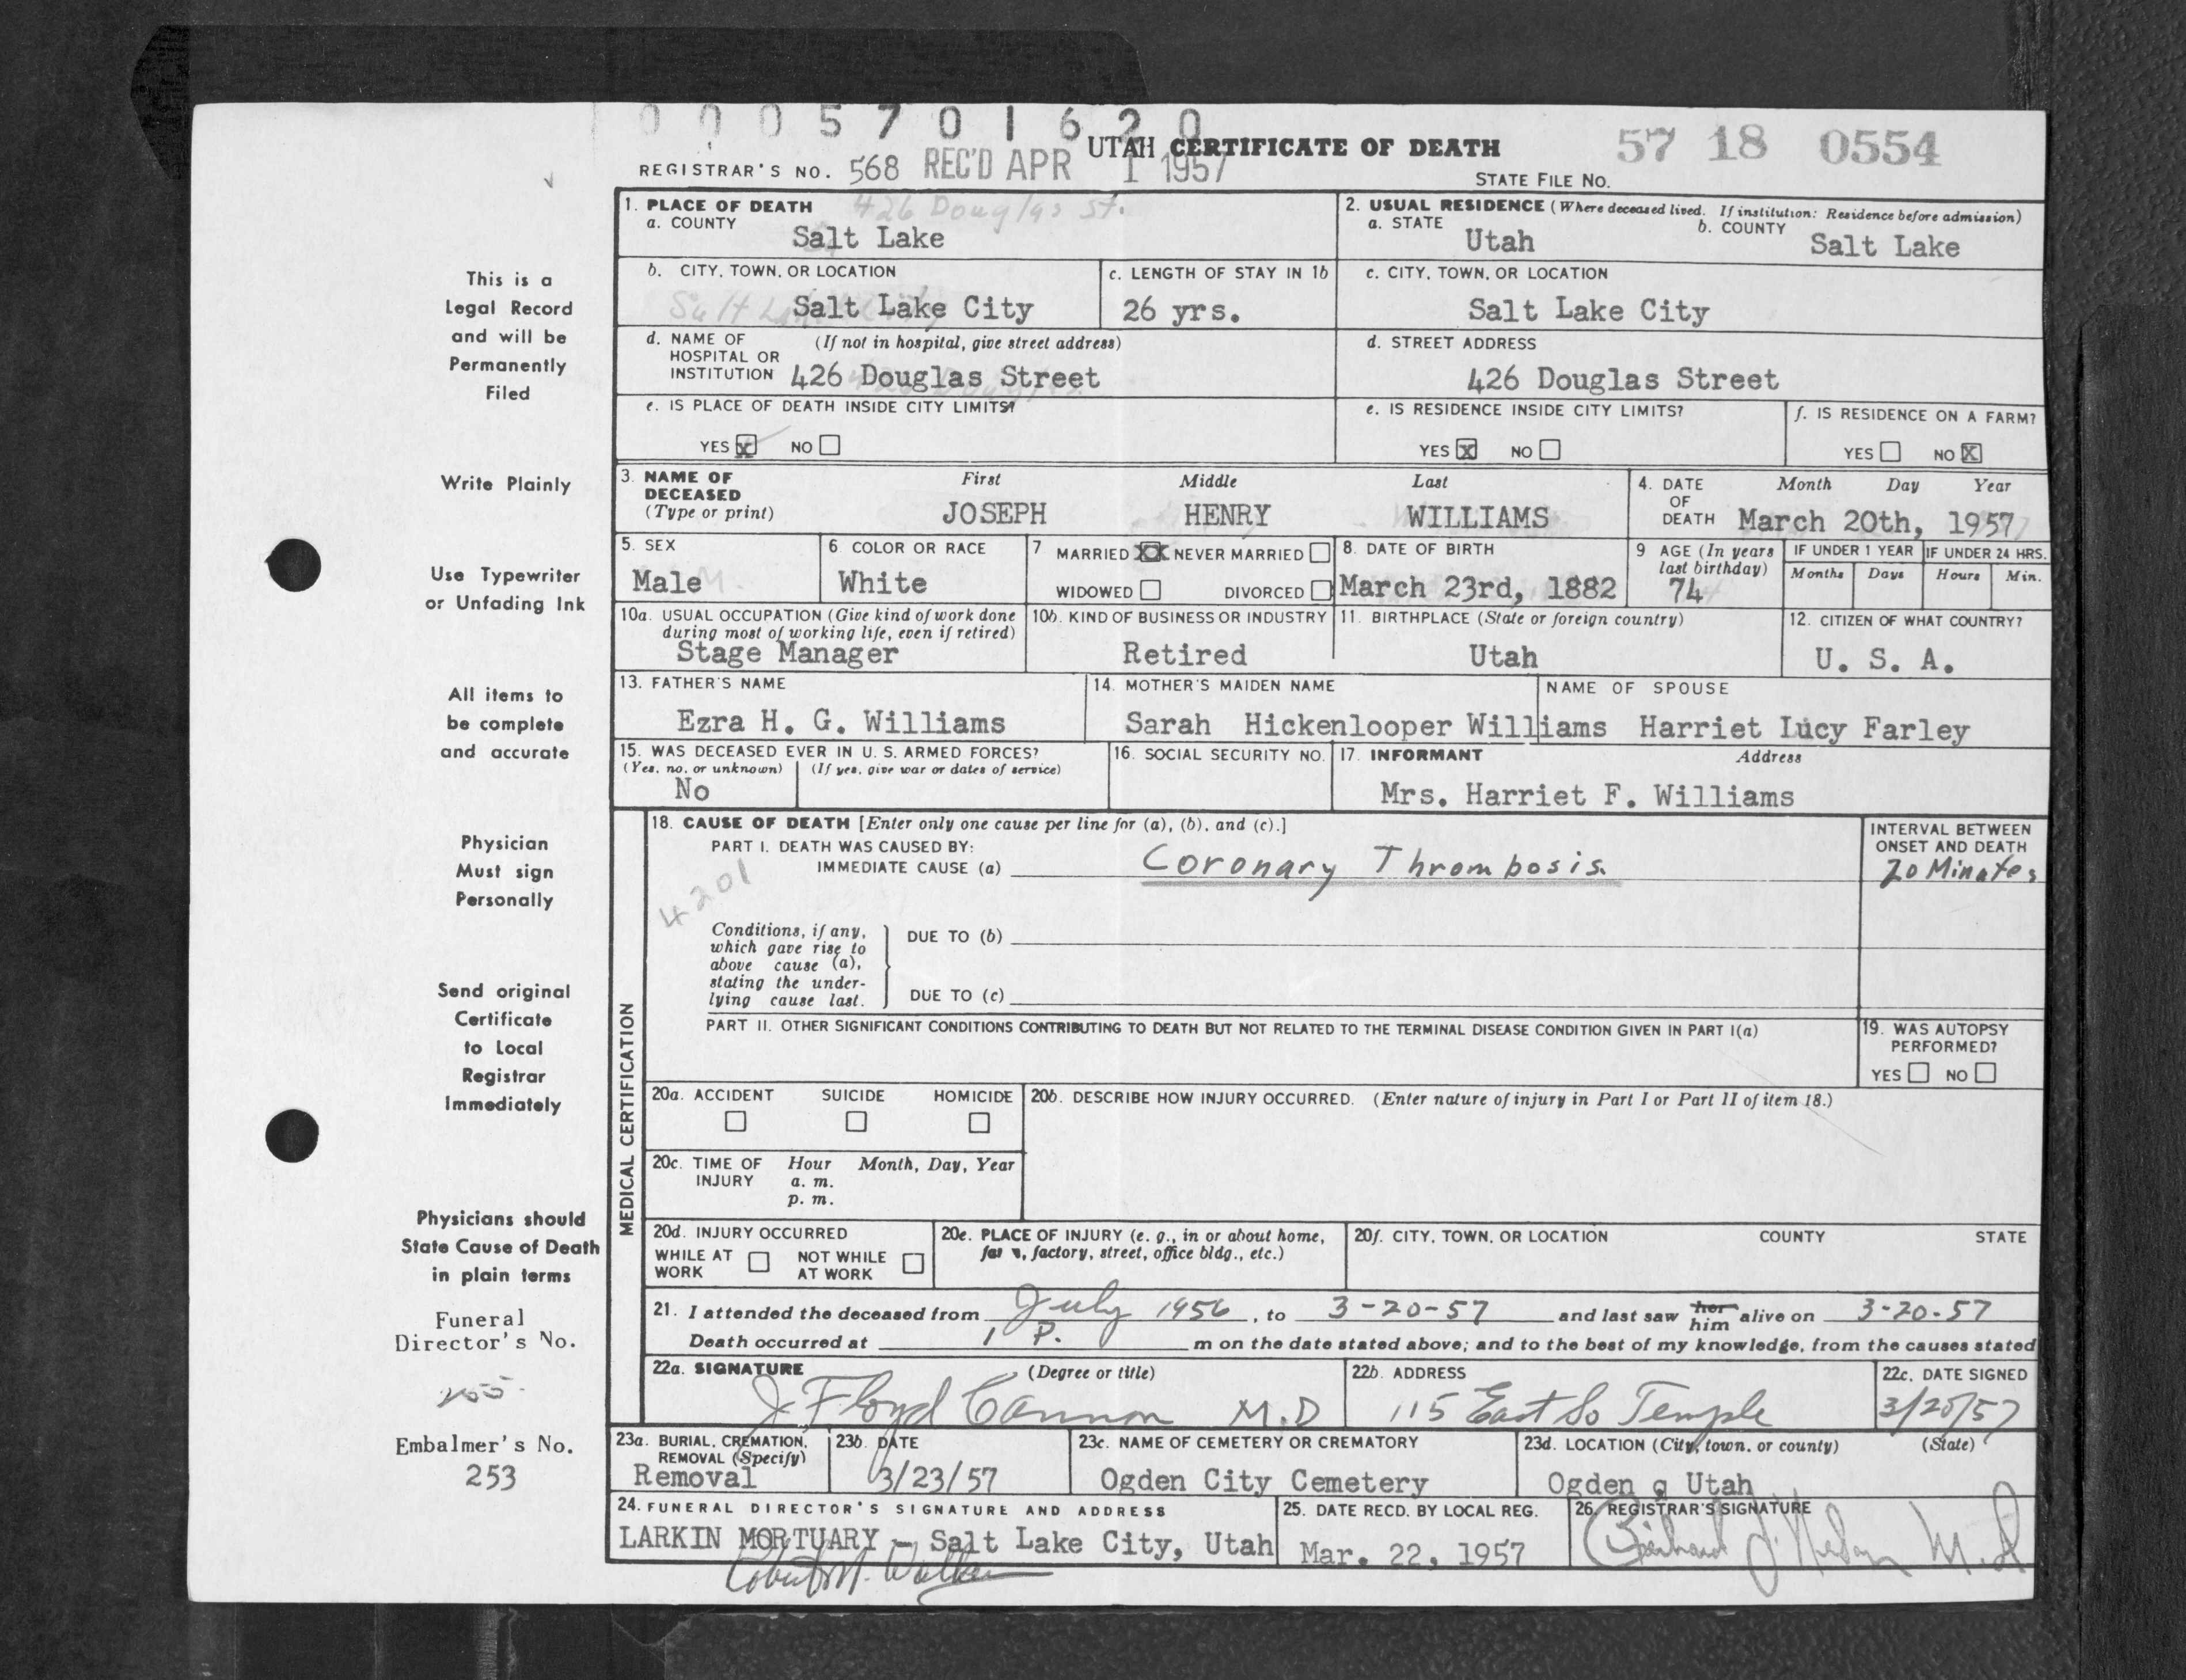 0005701620
UTAH CERTIFICATE OF DEATH
57 18 0554
REGISTRAR'S NO. 568 REC'D APR 1 1957
STATE FILE NO.
1. PLACE OF DEATH 426 Douglas St.
a. COUNTY
Salt Lake
2. USUAL RESIDENCE (Where deceased lived. If institution: Residence before admission)
a. STATE
Utah
b. COUNTY
Salt Lake
b. CITY, TOWN, OR LOCATION
Salt Lake City
c. LENGTH OF STAY IN 1b
26 yrs.
c. CITY, TOWN, OR LOCATION
Salt Lake City
d. NAME OF (If not in hospital, give street address)
HOSPITAL OR
INSTITUTION 426 Douglas Street
d. STREET ADDRESS
426 Douglas Street
e. IS PLACE OF DEATH INSIDE CITY LIMITS?
YES X NO
e. IS RESIDENCE INSIDE CITY LIMITS?
YES X NO
f. IS RESIDENCE ON A FARM?
YES NO X
3. NAME OF
DECEASED
(Type or print)
First Middle Last
JOSEPH HENRY WILLIAMS
4. DATE Month Day Year
OF
DEATH March 20th, 1957
5. SEX
Male
6. COLOR OR RACE
White
7 MARRIED XX NEVER MARRIED
WIDOWED DIVORCED
8. DATE OF BIRTH
March 23rd, 1882
9 AGE (In years
last birthday)
74
IF UNDER 1 YEAR
Months Days
IF UNDER 24 HRS.
Hours Min.
10a. USUAL OCCUPATION (Give kind of work done
during most of working life, even if retired)
Stage Manager
10b. KIND OF BUSINESS OR INDUSTRY
Retired
11. BIRTHPLACE (State or foreign country)
Utah
12. CITIZEN OF WHAT COUNTRY?
U. S. A.
13. FATHER'S NAME
Ezra H. G. Williams
14. MOTHER'S MAIDEN NAME
Sarah Hickenlooper Williams
NAME OF SPOUSE
Harriet Lucy Farley
15. WAS DECEASED EVER IN U. S. ARMED FORCES?
(Yes, no, or unknown) (If yes, give war or dates of service)
No
16. SOCIAL SECURITY NO.
17. INFORMANT Address
Mrs. Harriet F. Williams
MEDICAL CERTIFICATION
18. CAUSE OF DEATH [Enter only one cause per line for (a), (b), and (c).]
PART I. DEATH WAS CAUSED BY:
IMMEDIATE CAUSE (a) Coronary Thrombosis.
4201
INTERVAL BETWEEN
ONSET AND DEATH
20 Minutes
Conditions, if any,
which gave rise to
above cause (a),
stating the under-
lying cause last.
DUE TO (b)
DUE TO (c)
PART II. OTHER SIGNIFICANT CONDITIONS CONTRIBUTING TO DEATH BUT NOT RELATED TO THE TERMINAL DISEASE CONDITION GIVEN IN PART I(a)
19. WAS AUTOPSY
PERFORMED?
YES NO
20a. ACCIDENT SUICIDE HOMICIDE
20b. DESCRIBE HOW INJURY OCCURRED. (Enter nature of injury in Part I or Part II of item 18.)
20c. TIME OF Hour Month, Day, Year
INJURY a. m.
p. m.
20d. INJURY OCCURRED
WHILE AT NOT WHILE
WORK AT WORK
20e. PLACE OF INJURY (e. g., in or about home,
farm, factory, street, office bldg., etc.)
20f. CITY, TOWN, OR LOCATION COUNTY STATE
21. I attended the deceased from July 1956, to 3-20-57 and last saw her him alive on 3-20-57
Death occurred at 1 P. m on the date stated above; and to the best of my knowledge, from the causes stated
22a. SIGNATURE (Degree or title)
J Floyd Cannon M.D
22b. ADDRESS
115 East So Temple
22c. DATE SIGNED
3/20/57
23a. BURIAL, CREMATION,
REMOVAL (Specify)
Removal
23b. DATE
3/23/57
23c. NAME OF CEMETERY OR CREMATORY
Ogden City Cemetery
23d. LOCATION (City, town, or county) (State)
Ogden, Utah
24. FUNERAL DIRECTOR'S SIGNATURE AND ADDRESS
LARKIN MORTUARY - Salt Lake City, Utah
25. DATE RECD. BY LOCAL REG.
Mar. 22, 1957
26. REGISTRAR'S SIGNATURE
M.D
This is a
Legal Record
and will be
Permanently
Filed
Write Plainly
Use Typewriter
or Unfading Ink
All items to
be complete
and accurate
Physician
Must sign
Personally
Send original
Certificate
to Local
Registrar
Immediately
Physicians should
State Cause of Death
in plain terms
Funeral
Director's No.
Embalmer's No.
253